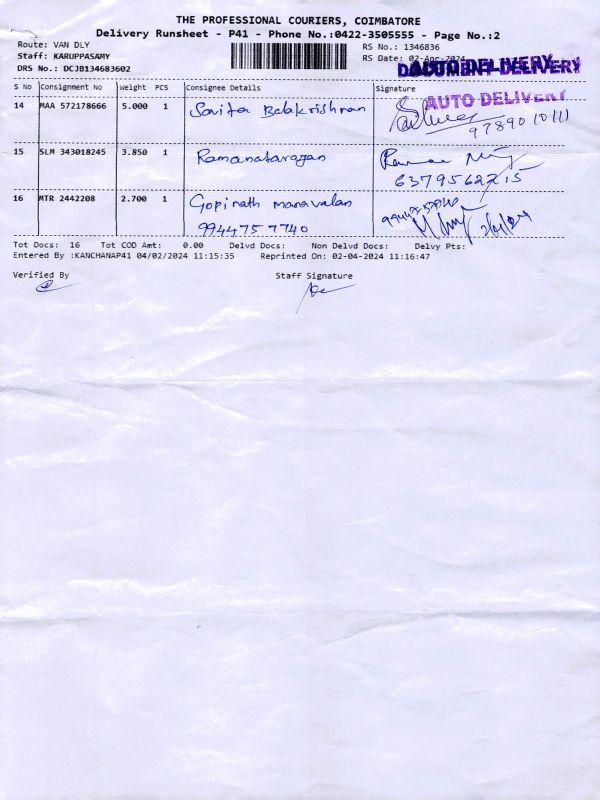 THE PROFESSIONAL COURIERS, COIMBATORE
Delivery Runsheet - P41 - Phone No.:0422-3505555 - Page No.:2
Route: VAN DLY
Staff: KARUPPASAMY
DRS No.: DCJB134683602
RS No.: 1346836
RS Date: 02-Apr-2024
DOCUMENT DELIVERY
S No Consignment No Weight PCS Consignee Details Signature
AUTO DELIVERY
14 MAA 572178666 5.000 1 Savita Balakrishnan
9789010111
15 SLM 343018245 3.850 1 Ramanatarajan
6379562215
16 MTR 2442208 2.700 1 Gopinath manavalan
9944757740
Tot Docs: 16 Tot COD Amt: 0.00 Delvd Docs: Non Delvd Docs: Delvy Pts:
Entered By :KANCHANAP41 04/02/2024 11:15:35 Reprinted On: 02-04-2024 11:16:47
Verified By Staff Signature